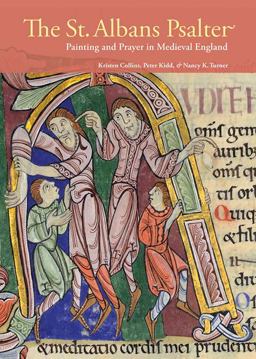 The St. Albans Psalter
Painting and Prayer in Medieval England
Kristen Collins, Peter Kidd, & Nancy K. Turner
VDITE H
om̄s gen
aurib;
om̄s qu
tis orb
Quiq
& fili
& meditatio cordis mei prudenti